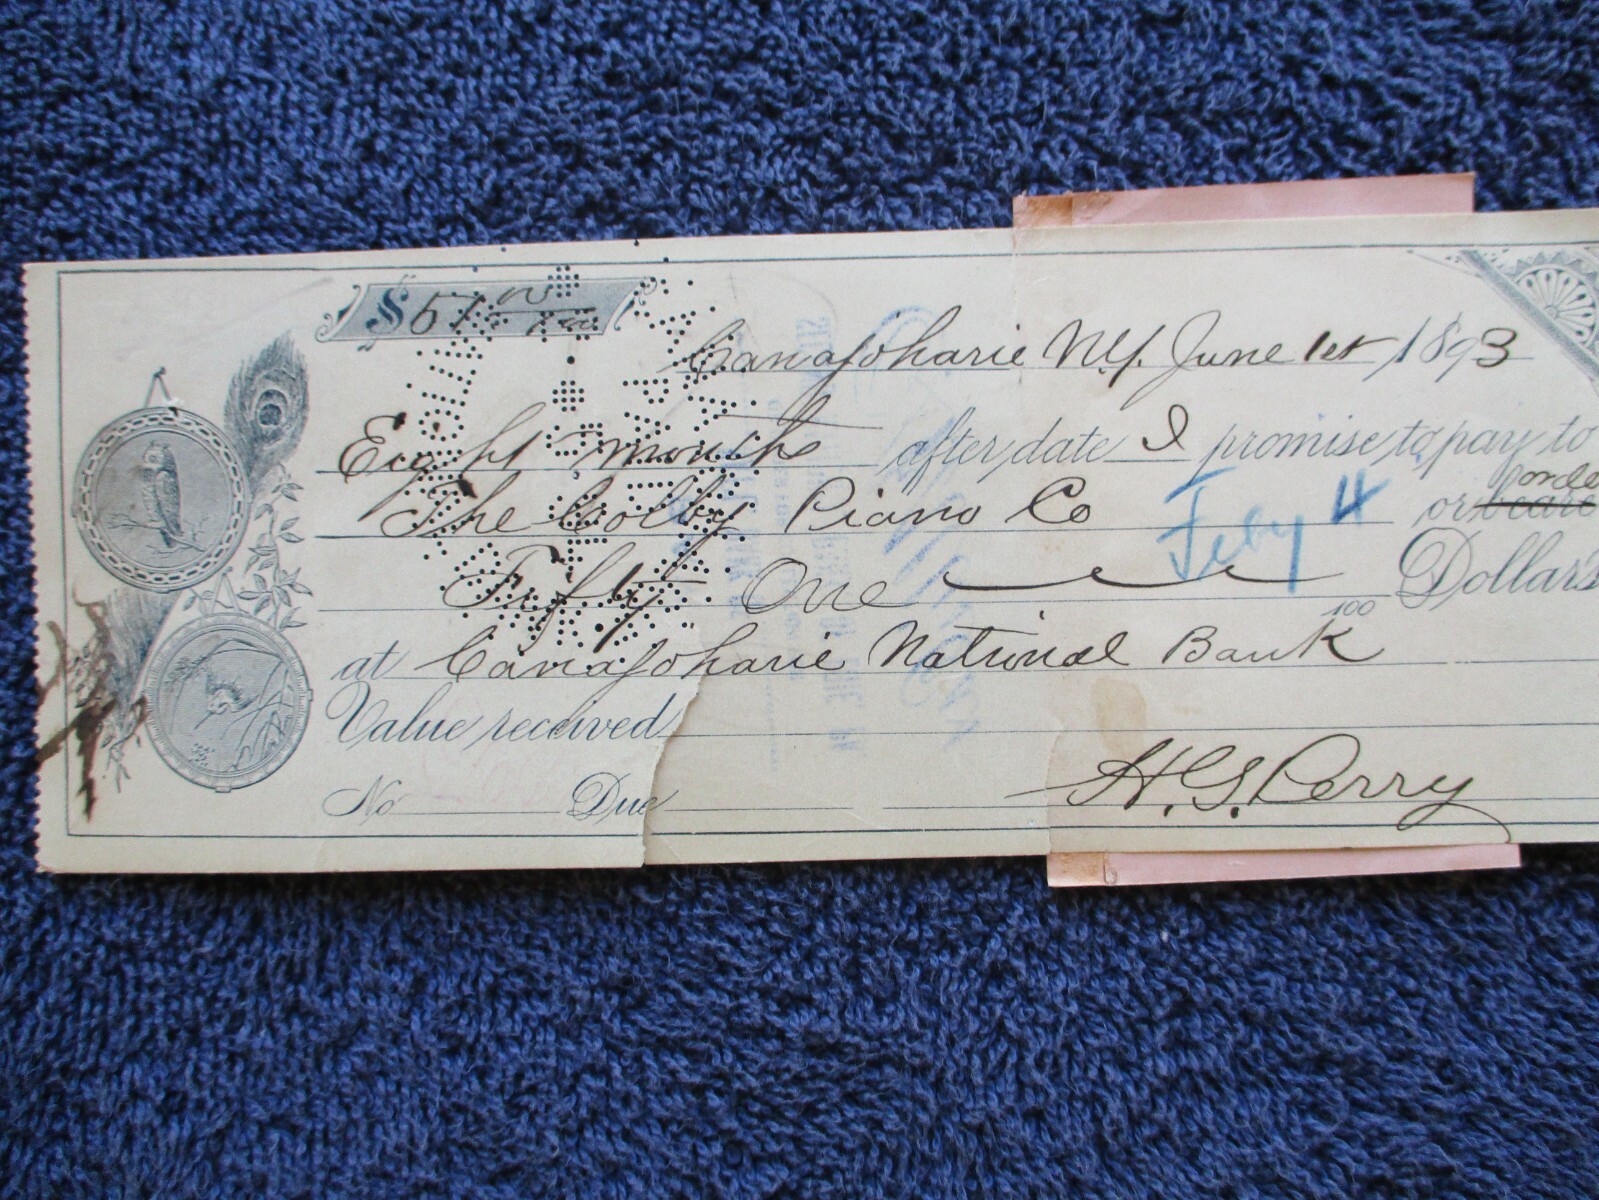 $ 51
Canajoharie N.Y. June 1st 1893
Eight months after date I promise to pay to
The Colby Piano Co or bearer order
Feby 4
Fifty One Dollars
100
at Canajoharie National Bank
Value received
No Due
H. G. Perry